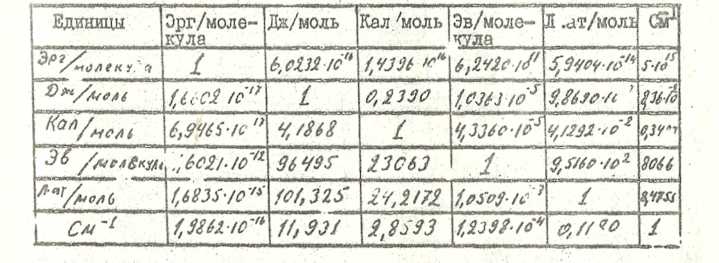 Единицы Эрг/моле-кула Дж/моль Кал/моль Эв/моле-кула Л.ат/моль См⁻¹
Эрг/молекула 1 6,0232·10¹⁶ 1,4396·10¹⁶ 6,2420·10¹¹ 5,9404·10⁻¹⁴ 5·10¹⁵
Дж/моль 1,6602·10⁻¹⁷ 1 0,2390 1,0363·10⁻⁵
Кал/моль 6,9465·10¹⁷ 4,1868 1 4,3360·10⁻⁵ 4,1292·10⁻²
Эв/молекул 1,6021·10⁻¹² 96495 23063 1 9,5160·10² 8066
Л.ат/моль 1,6835·10⁻¹⁵ 101,325 24,2172 1
См⁻¹ 1,9862·10⁻¹⁶ 11,931 2,8593 1,2398·10⁻⁴ 1